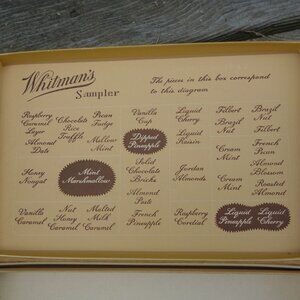 Whitman's
Sampler
The pieces in this box correspond
to this diagram
Raspberry
Caramel
Layer
Chocolate
Rice
Truffle
Pecan
Fudge
Vanilla
Cup
Liquid
Cherry
Filbert
Brazil
Nut
Brazil
Nut
Almond
Date
Mellow
Mint
Dipped
Pineapple
Liquid
Raisin
Filbert
Cream
Mint
French
Pecan
Honey
Nougat
Mint
Marshmallow
Solid
Chocolate
Bricks
Jordan
Almonds
Cream
Mint
Almond
Blossom
Roasted
Almond
Almond
Paste
Vanilla
Caramel
Nut
Honey
Caramel
Malted
Milk
Caramel
French
Pineapple
Raspberry
Cordial
Liquid
Pineapple
Liquid
Cherry